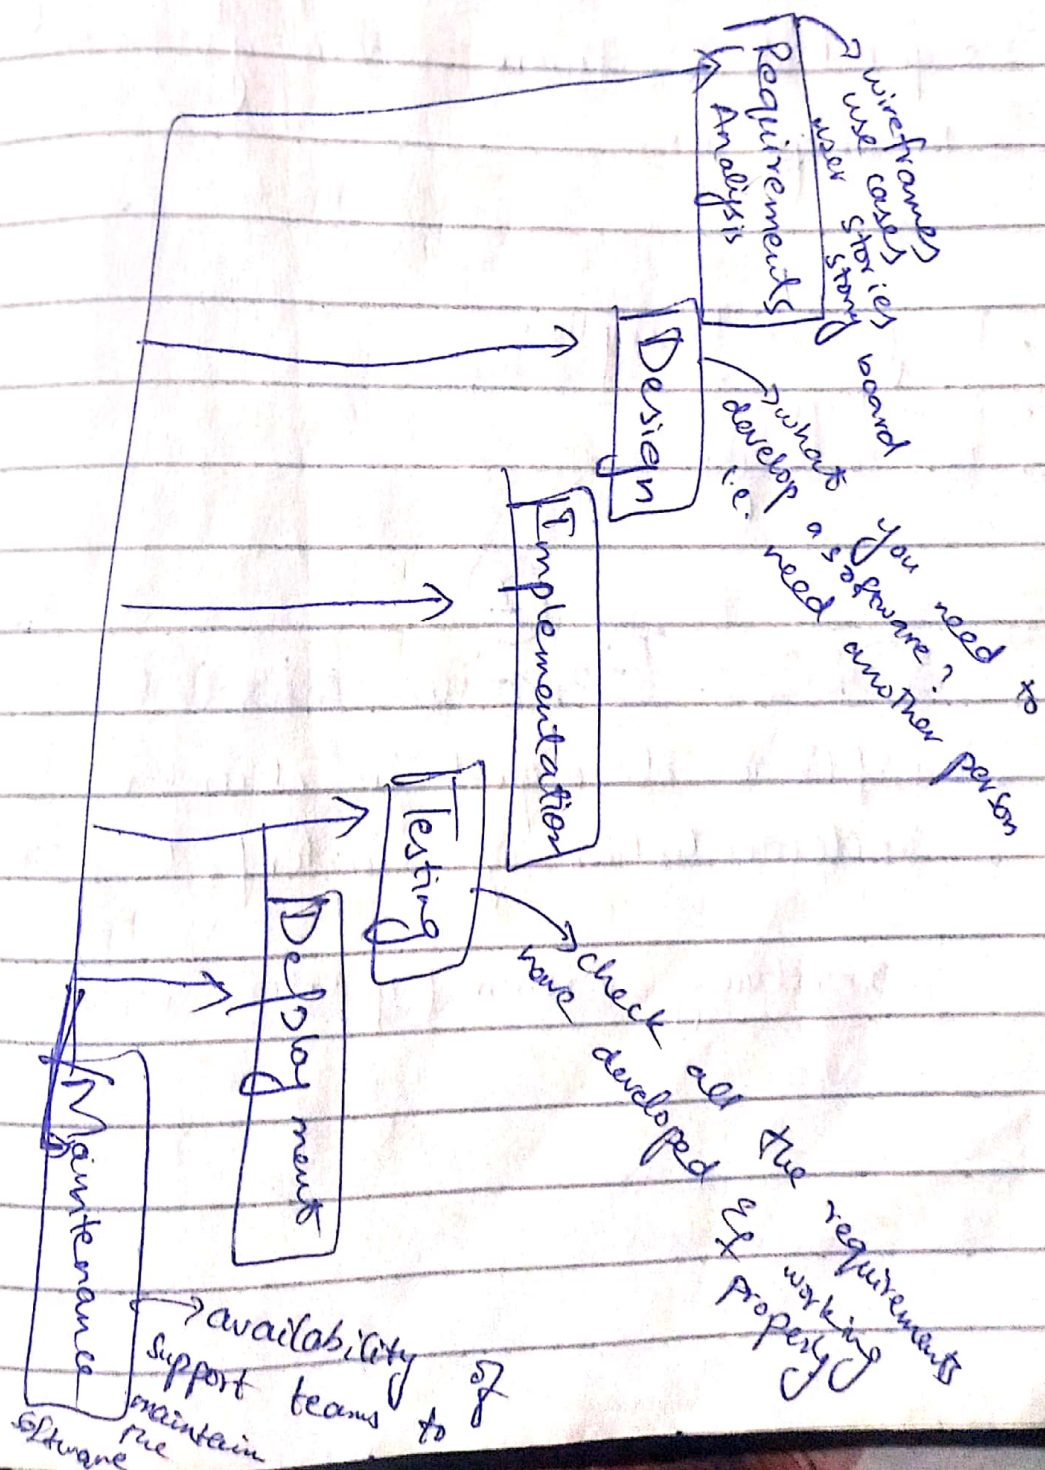 Requirements
Analysis
wireframes
use cases
user stories
story board
Design
what you need to
develop a software?
i.e. need another person
Implementation
Testing
check all the requirements
have developed & working
properly
Deployment
Maintenance
availability of
support teams to
maintain
the
software